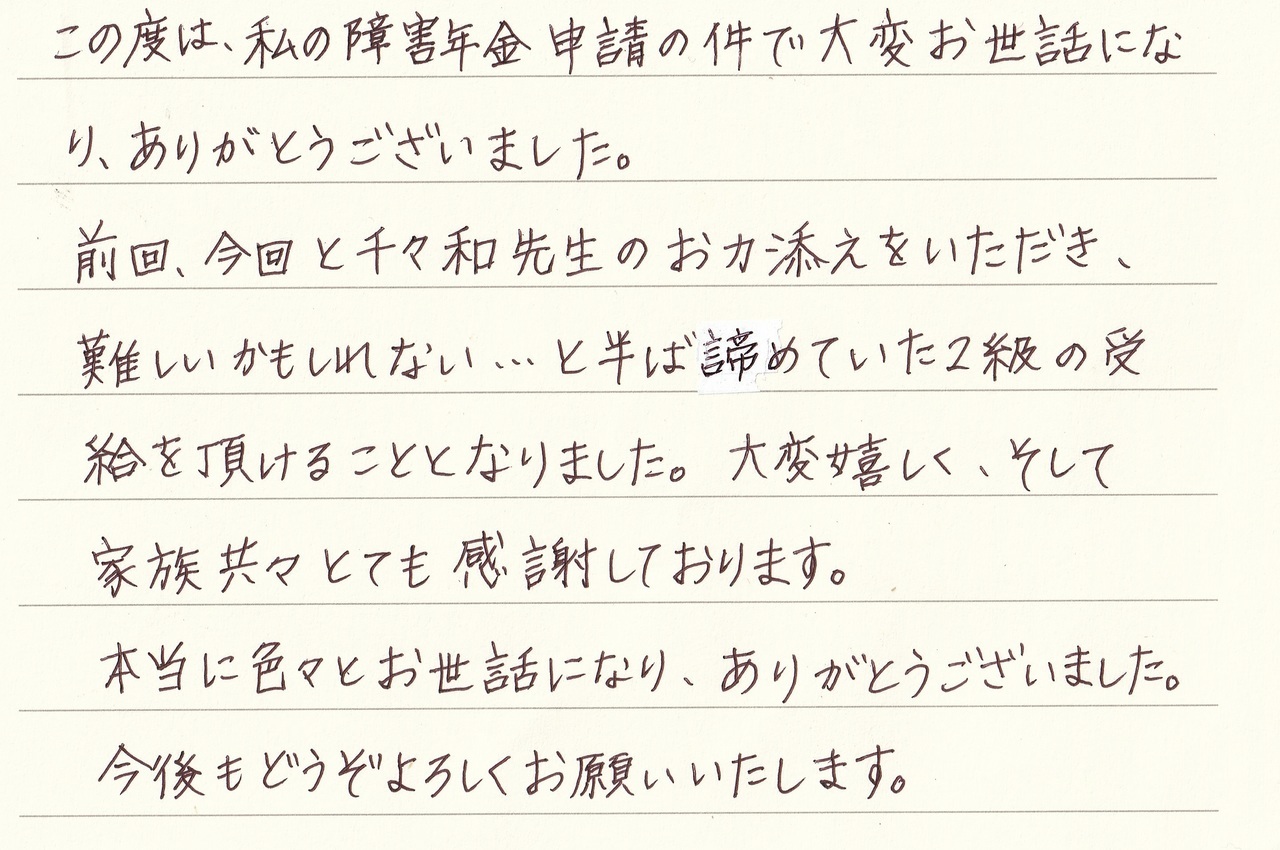 この度は、私の障害年金申請の件で大変お世話にな
り、ありがとうございました。
前回、今回と千々和先生のお力添えをいただき、
難しいかもしれない…と半ば諦めていた2級の受
給を頂けることとなりました。大変嬉しく、そして
家族共々とても感謝しております。
本当に色々とお世話になり、ありがとうございました。
今後もどうぞよろしくお願いいたします。